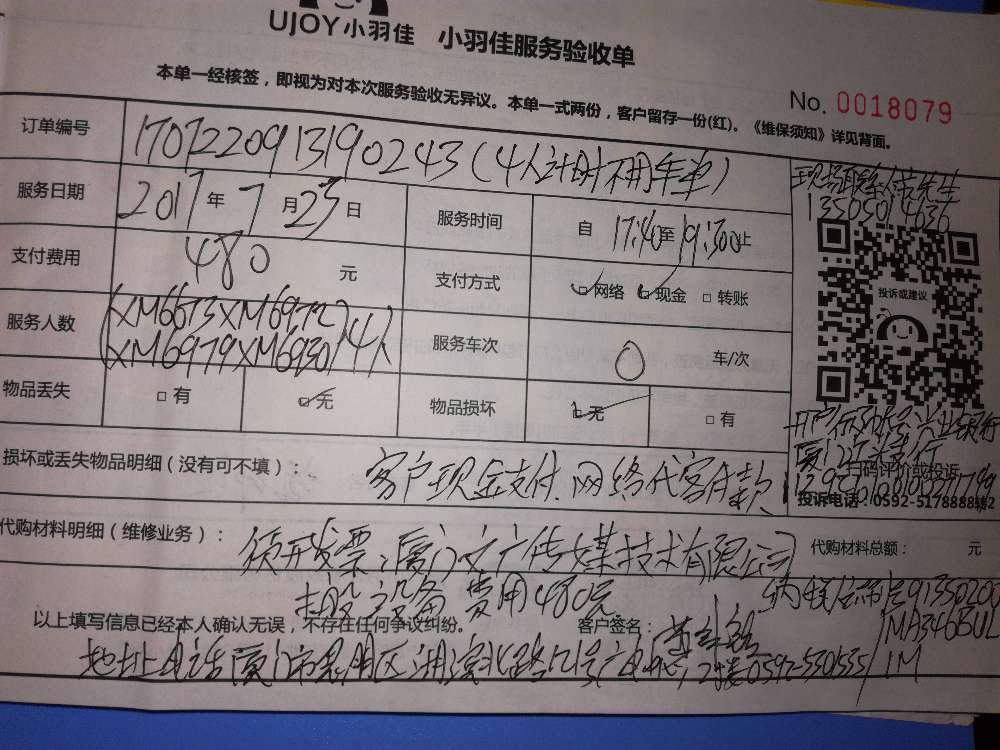 UJOY小羽佳 小羽佳服务验收单
本单一经核签，即视为对本次服务验收无异议。本单一式两份，客户留存一份(红)。《维保须知》详见背面。
No. 0018079
订单编号 1707220913190243(4人计时不用车单)
现场联系人 先生
13505014636
服务日期 2017年7月23日 服务时间 自17:40至19:30止
支付费用 480元 支付方式 网络 现金 转账
投诉或建议
服务人数 (XM6673XM6972 XM6979XM6930)4人 服务车次 0 车/次
物品丢失 有 无 物品损坏 无 有
开户行 兴业银行
厦门 支行
扫码评价或投诉
投诉电话：0592-5178888转2
损坏或丢失物品明细（没有可不填）： 客户现金支付.网络代客付款
代购材料明细（维修业务）： 须开发票:厦门文广传媒技术有限公司 代购材料总额： 元
搬设备 费用480元
91350200
MA346BUL
1M
以上填写信息已经本人确认无误，不存在任何争议纠纷。 客户签名：
地址电话厦门市思明区湖滨北路 号广电中心 2楼0592-5301535